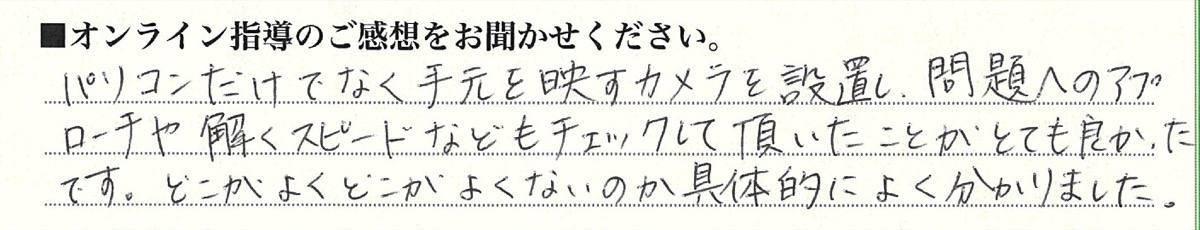 ■オンライン指導のご感想をお聞かせください。
パソコンだけでなく手元を映すカメラを設置し、問題へのアプ
ローチや解くスピードなどもチェックして頂いたことがとても良かった
です。どこがよくどこがよくないのか具体的によく分かりました。